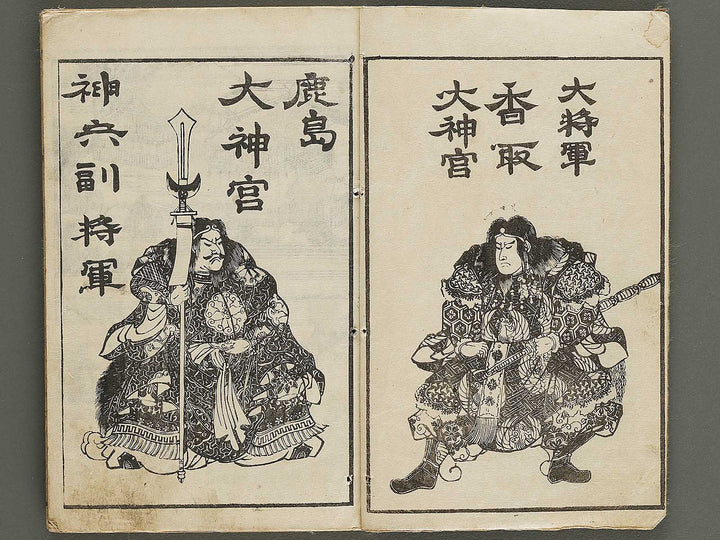 大将軍
香取
大神宮
鹿島
大神宮
神兵副将軍